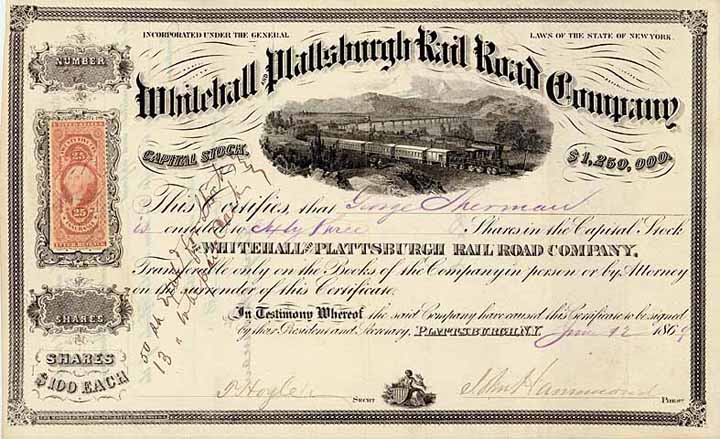 INCORPORATED UNDER THE GENERAL LAWS OF THE STATE OF NEW YORK.
NUMBER
Whitehall and Plattsburgh Rail Road Company
CAPITAL STOCK, $1,250,000.
This Certifies, that George Sherman
is entitled to Sixty Three Shares in the Capital Stock
of the WHITEHALL AND PLATTSBURGH RAIL ROAD COMPANY,
Transferable only on the Books of the Company in person or by Attorney
on the surrender of this Certificate.
In Testimony Whereof the said Company have caused this Certificate to be signed
by their President and Secretary, PLATTSBURGH, N.Y. June 12 1869
25
25
SHARES
SHARES
$100 EACH
50
13 "
SECR'Y
John Hammond PRES'T